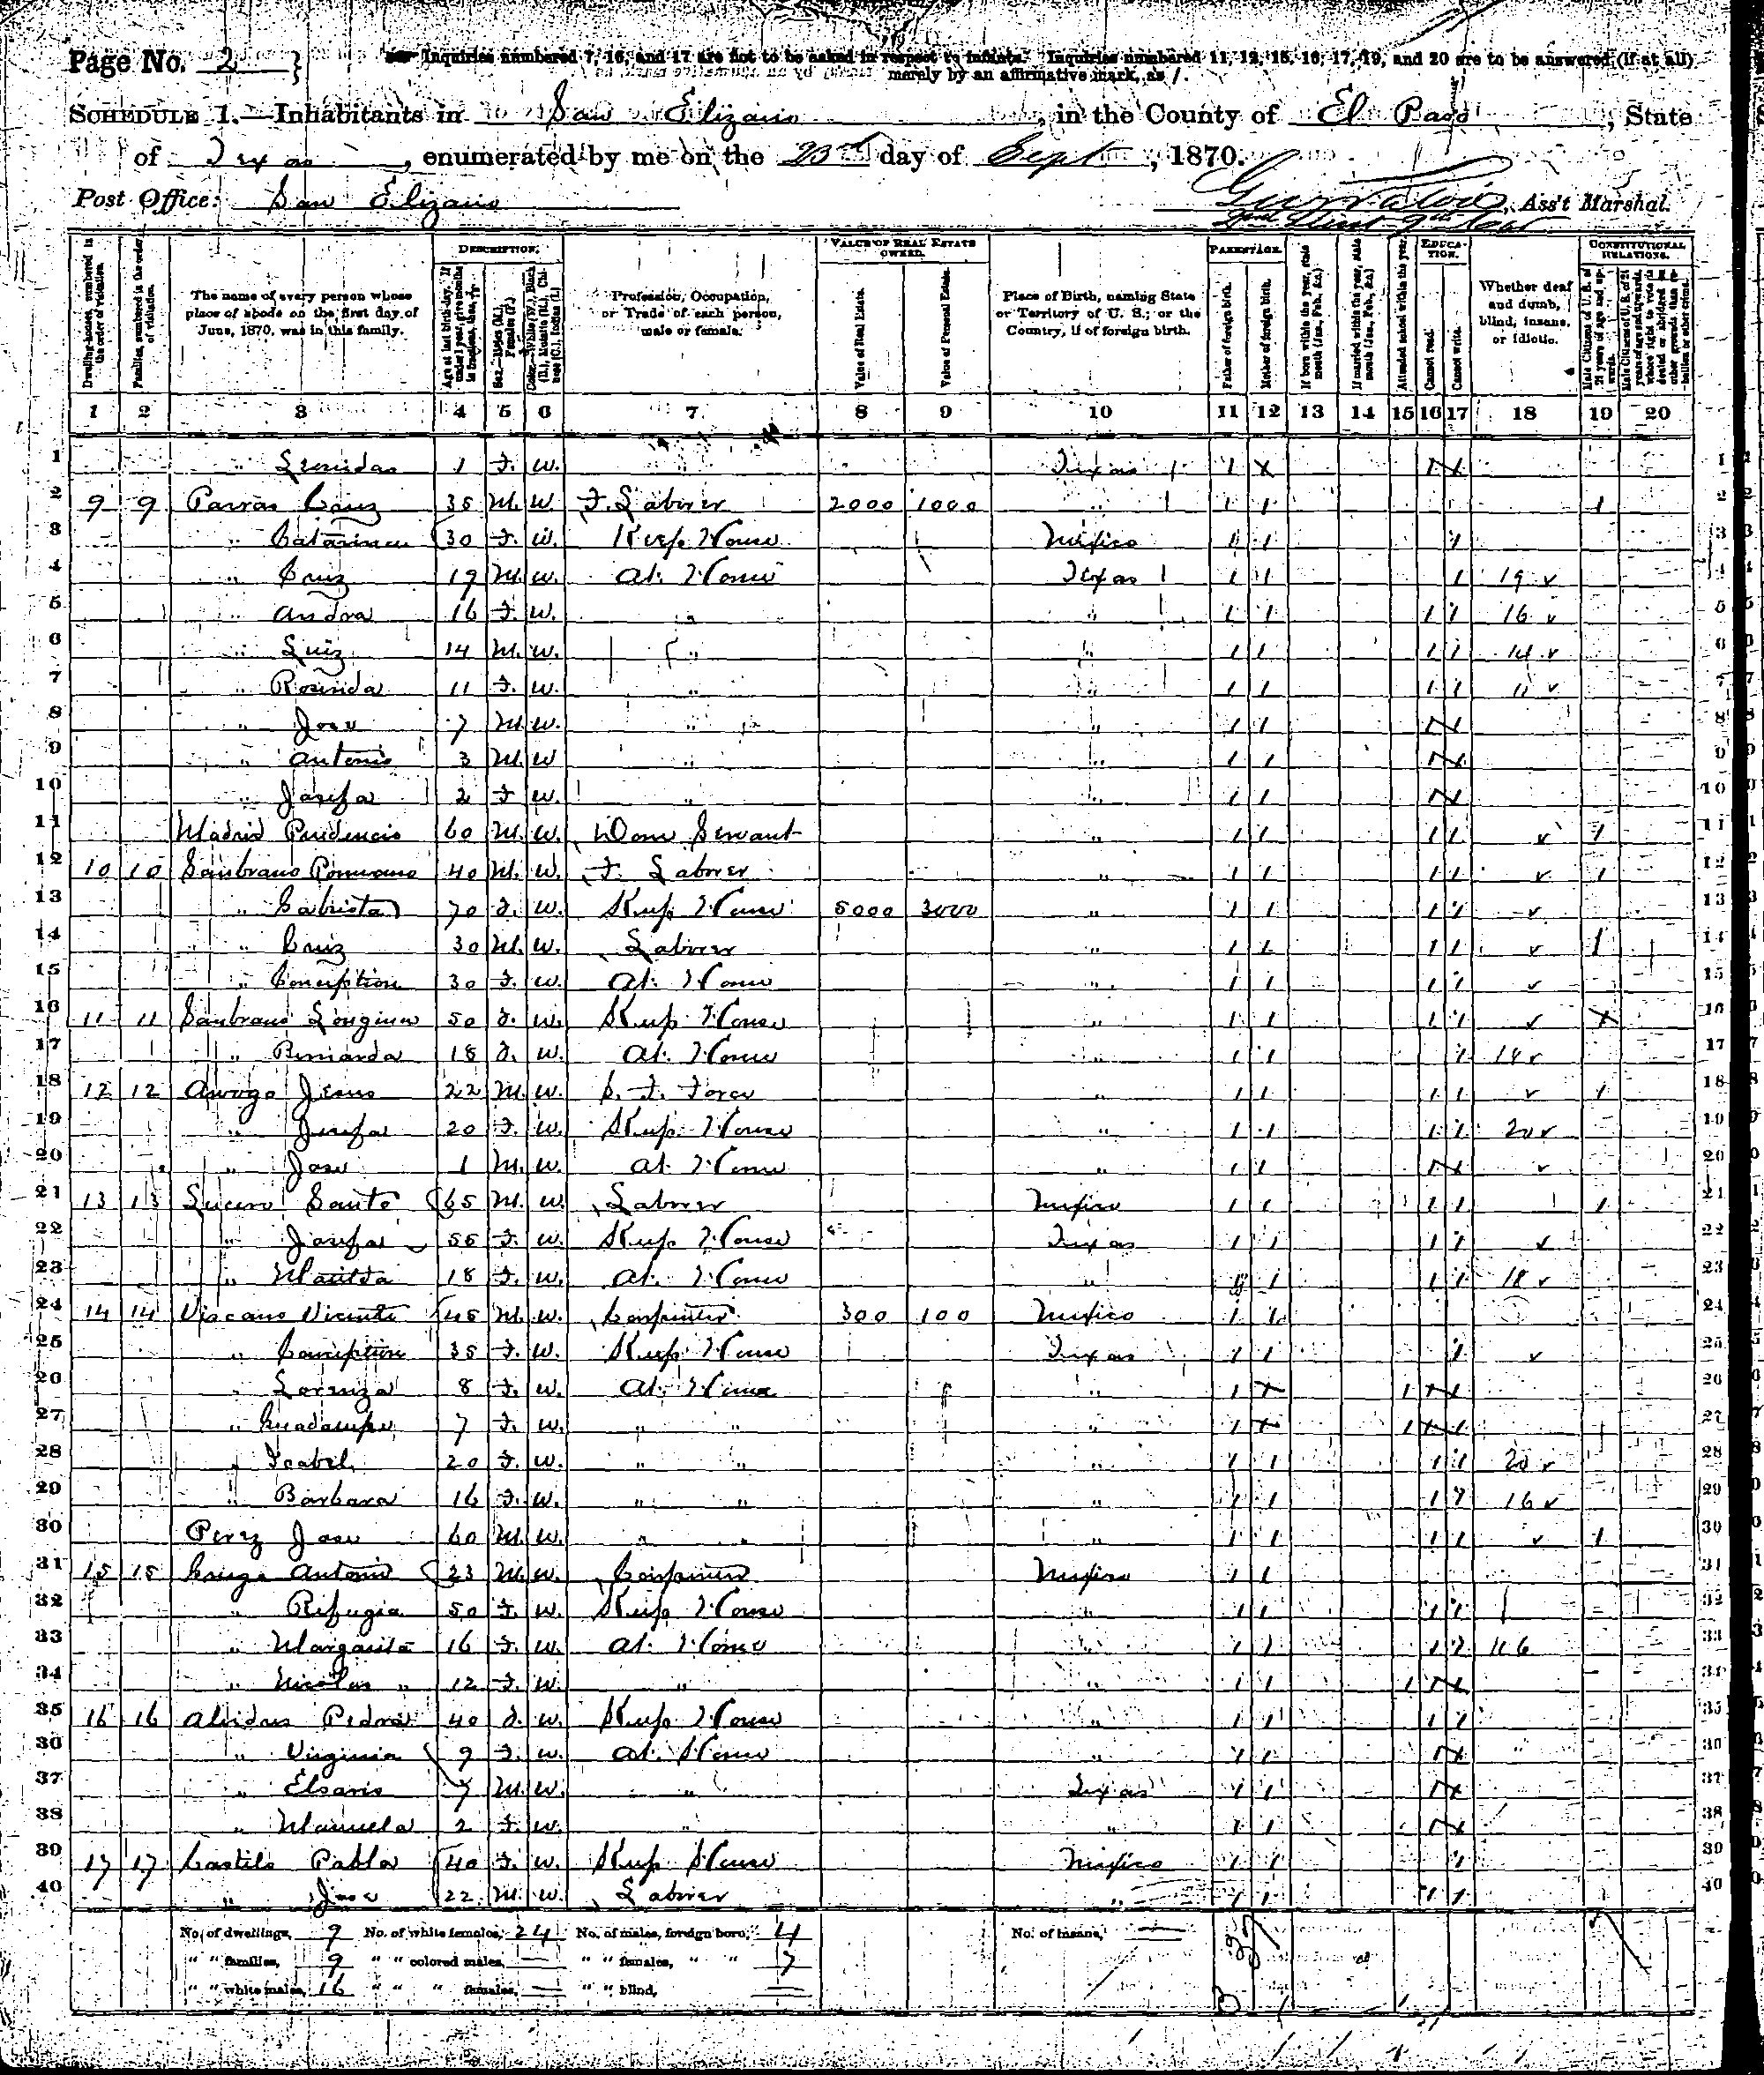 Page No. 2 }
Inquiries numbered 7, 16, and 17 are not to be asked in respect to infants. Inquiries numbered 11, 12, 15, 16, 17, 19, and 20 are to be answered (if at all)
merely by an affirmative mark, as /.
SCHEDULE 1.—Inhabitants in San Elizario, in the County of El Paso, State
of Texas, enumerated by me on the 23rd day of Sept, 1870.
Post Office: San Elizario
Ass't Marshal.
DESCRIPTION. VALUE OF REAL ESTATE OWNED. PARENTAGE. EDUCATION. CONSTITUTIONAL RELATIONS.
Dwelling-houses, numbered in the order of visitation.
Families, numbered in the order of visitation.
The name of every person whose place of abode on the first day of June, 1870, was in this family.
Age at last birth-day. If under 1 year, give months in fractions, thus, 3/12
Sex.—Males (M.), Females (F.)
Color.—White (W.), Black (B.), Mulatto (M.), Chinese (C.), Indian (I.)
Profession, Occupation, or Trade of each person, male or female.
Value of Real Estate.
Value of Personal Estate.
Place of Birth, naming State or Territory of U. S.; or the Country, if of foreign birth.
Father of foreign birth.
Mother of foreign birth.
If born within the year, state month (Jan., Feb., &c.)
If married within the year, state month (Jan., Feb., &c.)
Attended school within the year.
Cannot read.
Cannot write.
Whether deaf and dumb, blind, insane, or idiotic.
Male Citizens of U. S. of 21 years of age and upwards.
Male Citizens of U. S. of 21 years of age and upwards, whose right to vote is denied or abridged on other grounds than rebellion or other crime.
1 2 3 4 5 6 7 8 9 10 11 12 13 14 15 16 17 18 19 20
1 " 1 F. W. " Texas 1 X 1 X 1
2 9 9 Parras Cruz 35 M. W. F. Laborer 2000 1000 " 1 1 1 2
3 " Catarina 30 F. W. Keep House Mexico 1 1 1 3
4 " Cruz 19 M. W. At Home Texas 1 1 1 19 v 4
5 " Andra 16 F. W. " " 1 1 1 1 16 v 5
6 " Luiz 14 M. W. " " 1 1 1 1 14 v 6
7 " Rosinda 11 F. W. " " 1 1 1 1 11 v 7
8 " Jose 7 M. W. " " 1 1 1 X 8
9 " Antonio 3 M. W " " 1 1 1 X 9
10 " Josefa 2 F. W. " " 1 1 1 X 10
11 Madrid Prudencio 60 M. W. Dom Servant " 1 1 1 1 v 1 11
12 10 10 Sanbrano 40 M. W. F. Laborer " 1 1 1 1 v 1 12
13 " 70 F. W. Keep House 5000 3000 " 1 1 1 1 v 13
14 " Cruz 30 M. W. Laborer " 1 1 1 1 v 1 14
15 " Conception 30 F. W. At Home " 1 1 1 1 v 15
16 11 11 Sanbrano Longina 50 F. W. Keep House " 1 1 1 1 v X 16
17 " 18 F. W. At Home " 1 1 1 18 v 17
18 12 12 Jesus 22 M. W. S. F. Force " 1 1 1 1 v 1 18
19 " Josefa 20 F. W. Keep House " 1 1 1 1 20 v 19
20 " Jose 1 M. W. At Home " 1 1 1 X v 20
21 13 13 Lucero Santo 65 M. W. Laborer Mexico 1 1 1 1 1 21
22 " Josefa 55 F. W. Keep House Texas 1 1 1 1 v 22
23 " 18 F. W. At Home " 1 1 1 1 18 v 23
24 14 14 Viscano Vicente 45 M. W. Carpenter 300 100 Mexico 1 1 24
25 " Conception 35 F. W. Keep House Texas 1 1 1 v 25
26 " Lorenza 8 F. W. At Home " 1 X 1 X 1 26
27 " Guadalupe 7 F. W. " " " 1 X 1 X 1 27
28 " Isabel 20 F. W. " " " 1 1 1 1 20 v 28
29 " Barbara 16 F. W. " " " 1 1 1 1 16 v 29
30 Perez Jose 60 M. W. " " " 1 1 1 1 v 1 30
31 15 15 Antonio 23 M. W. Carpenter Mexico 1 1 31
32 " Refugia 50 F. W. Keep House " 1 1 1 1 32
33 " Margarita 16 F. W. At Home " 1 1 1 1 16 33
34 " Nicolas " 12 F. W. " " 1 1 1 1 X 34
35 16 16 Pedra 40 F. W. Keep House " 1 1 1 1 35
36 " Virginia 9 F. W. At Home " 1 1 1 X 36
37 " 7 M. W. " Texas 1 1 1 X 37
38 " Manuela 2 F. W. " " 1 1 1 X 38
39 17 17 Castilo Pabla 40 F. W. Keep House Mexico 1 1 1 39
40 " Jose 22 M. W. Laborer " 1 1 1 1 40
No. of dwellings, 9 No. of white females, 24 No. of males, foreign born, 4 No. of insane, —
" " families, 9 " " colored males, — " " females, " " 7
" " white males, 16 " " " females, — " " blind, —